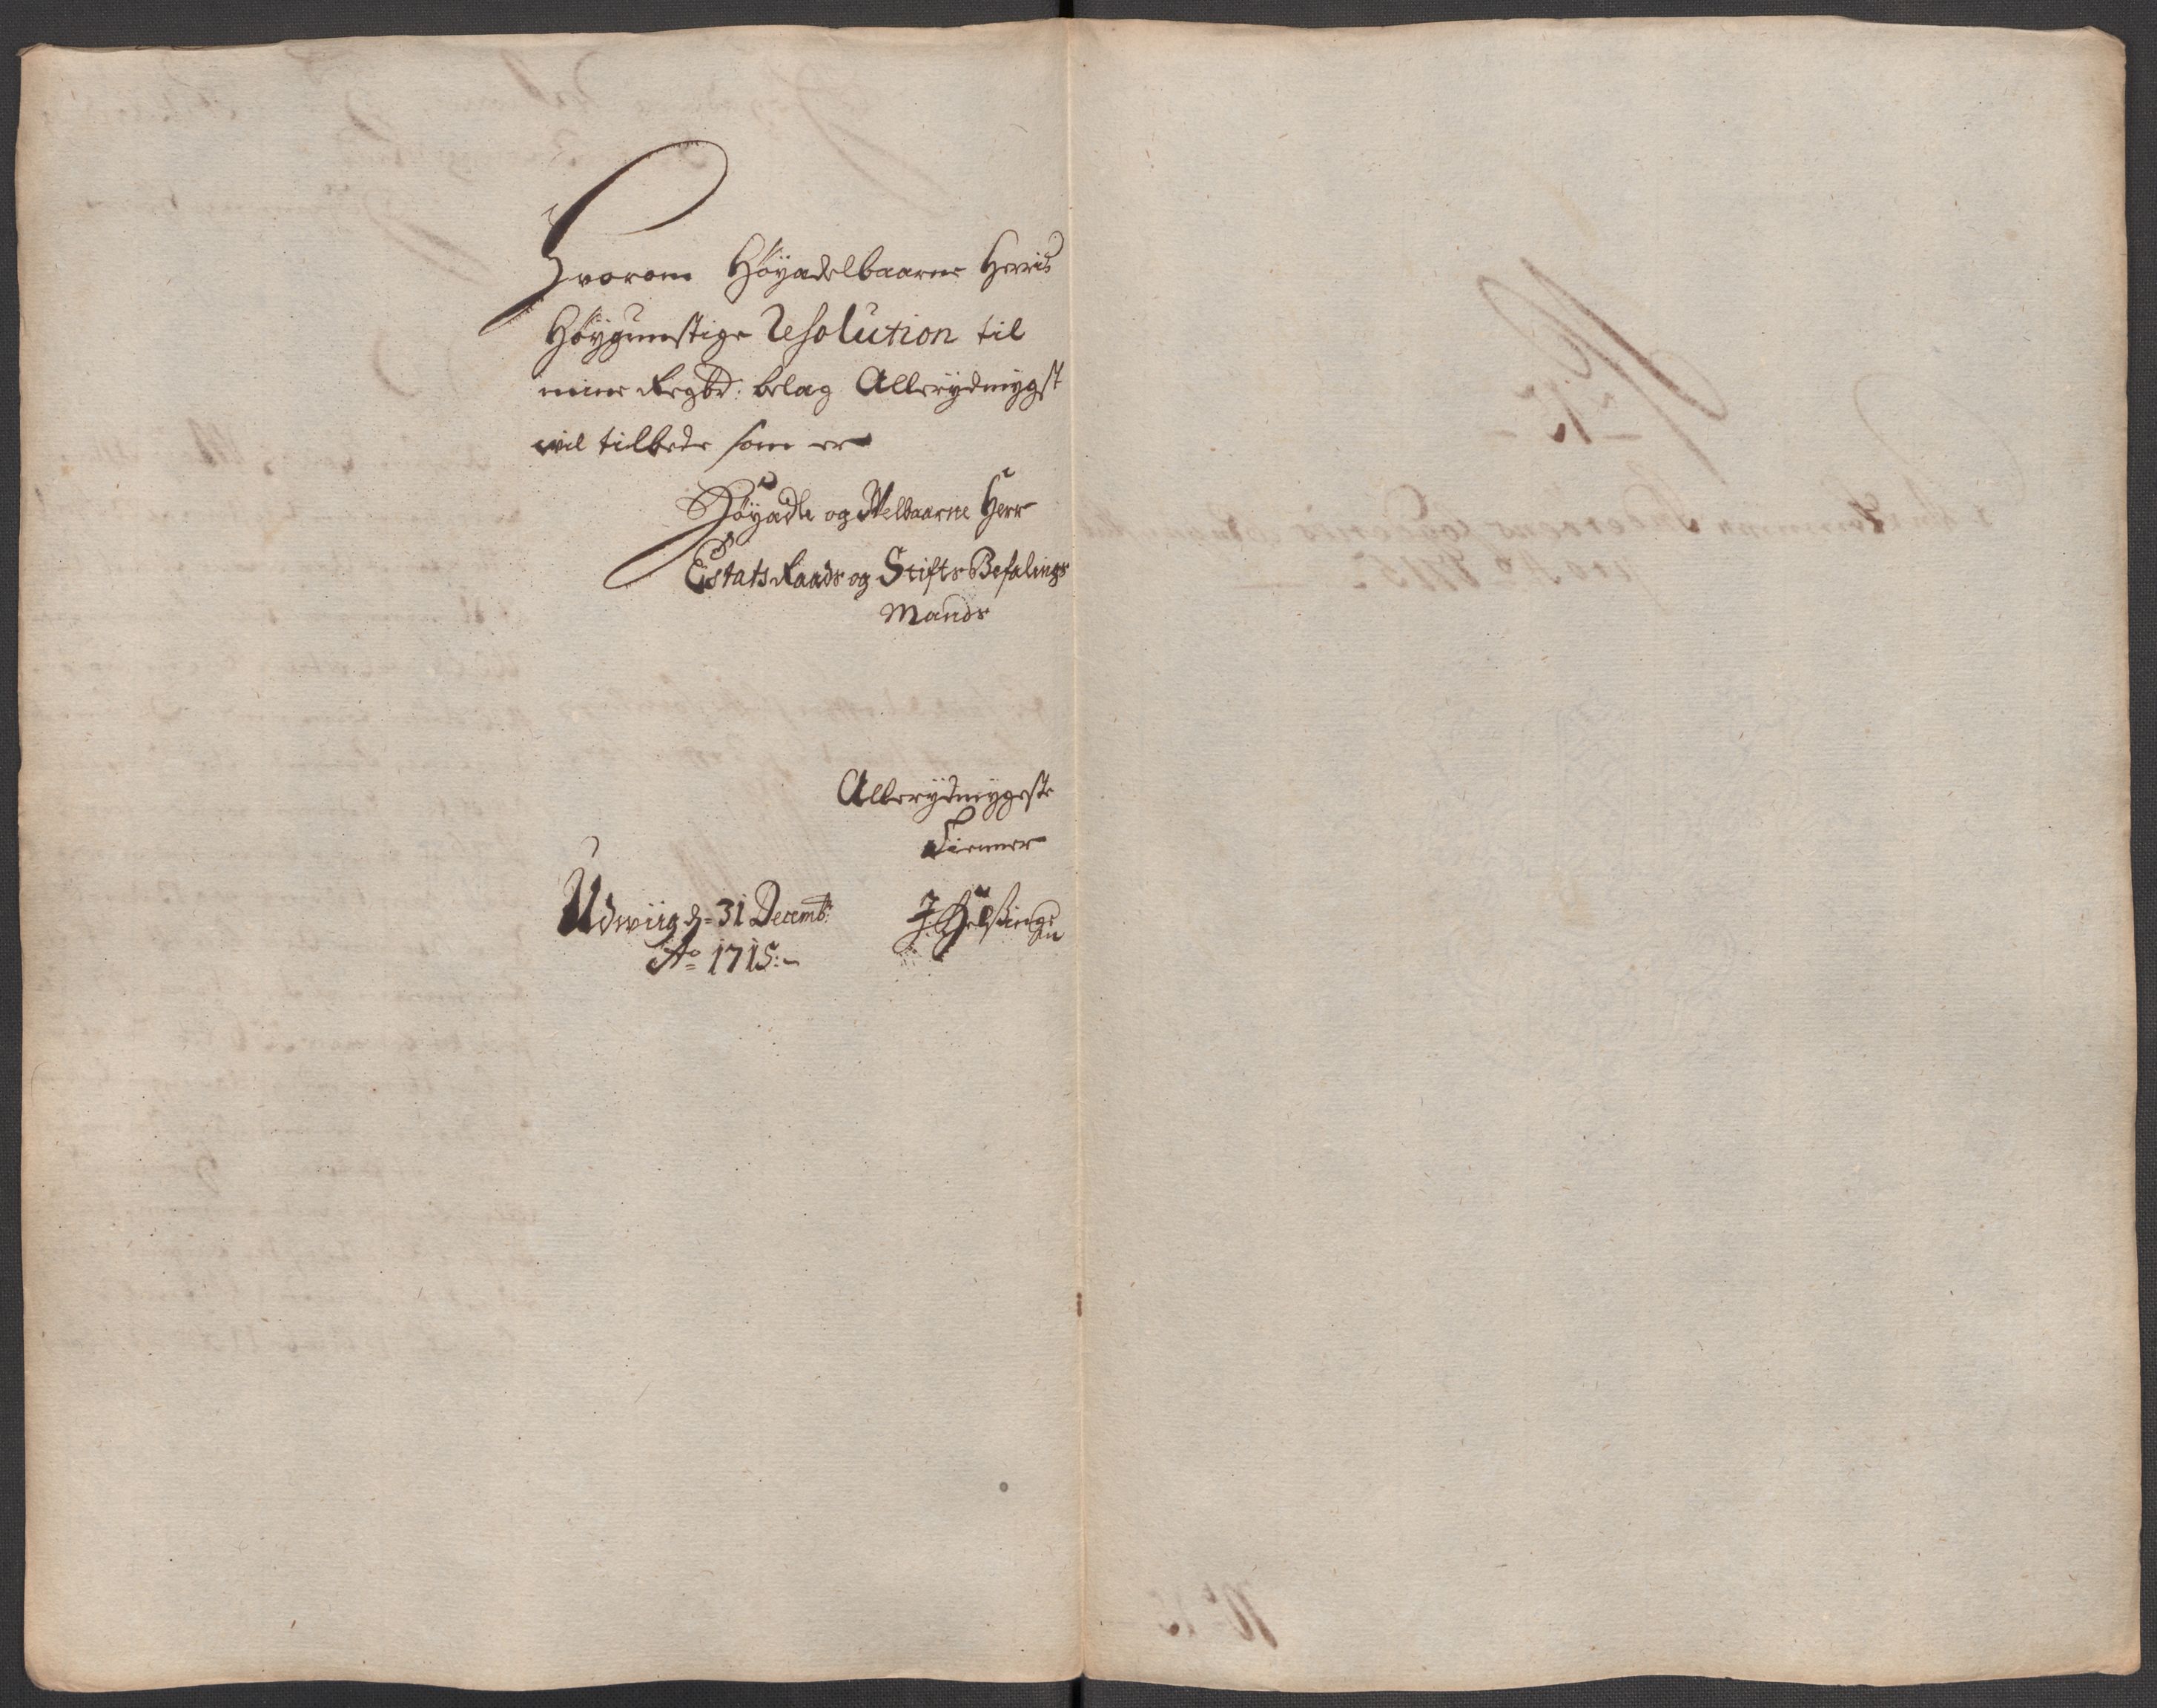 Hvorom Høyadelbaarne Herris
Høygunstige Resolution til
mine Regbr: belag Allerydmygst
vil tilbede som er
Høyadle og Welbaarne Herr
Estats Raads og Stifts Befalings
Mands
Allerydmygeste
Tienner
Udwiig d= 31 Decemb:
Ao 1715:-